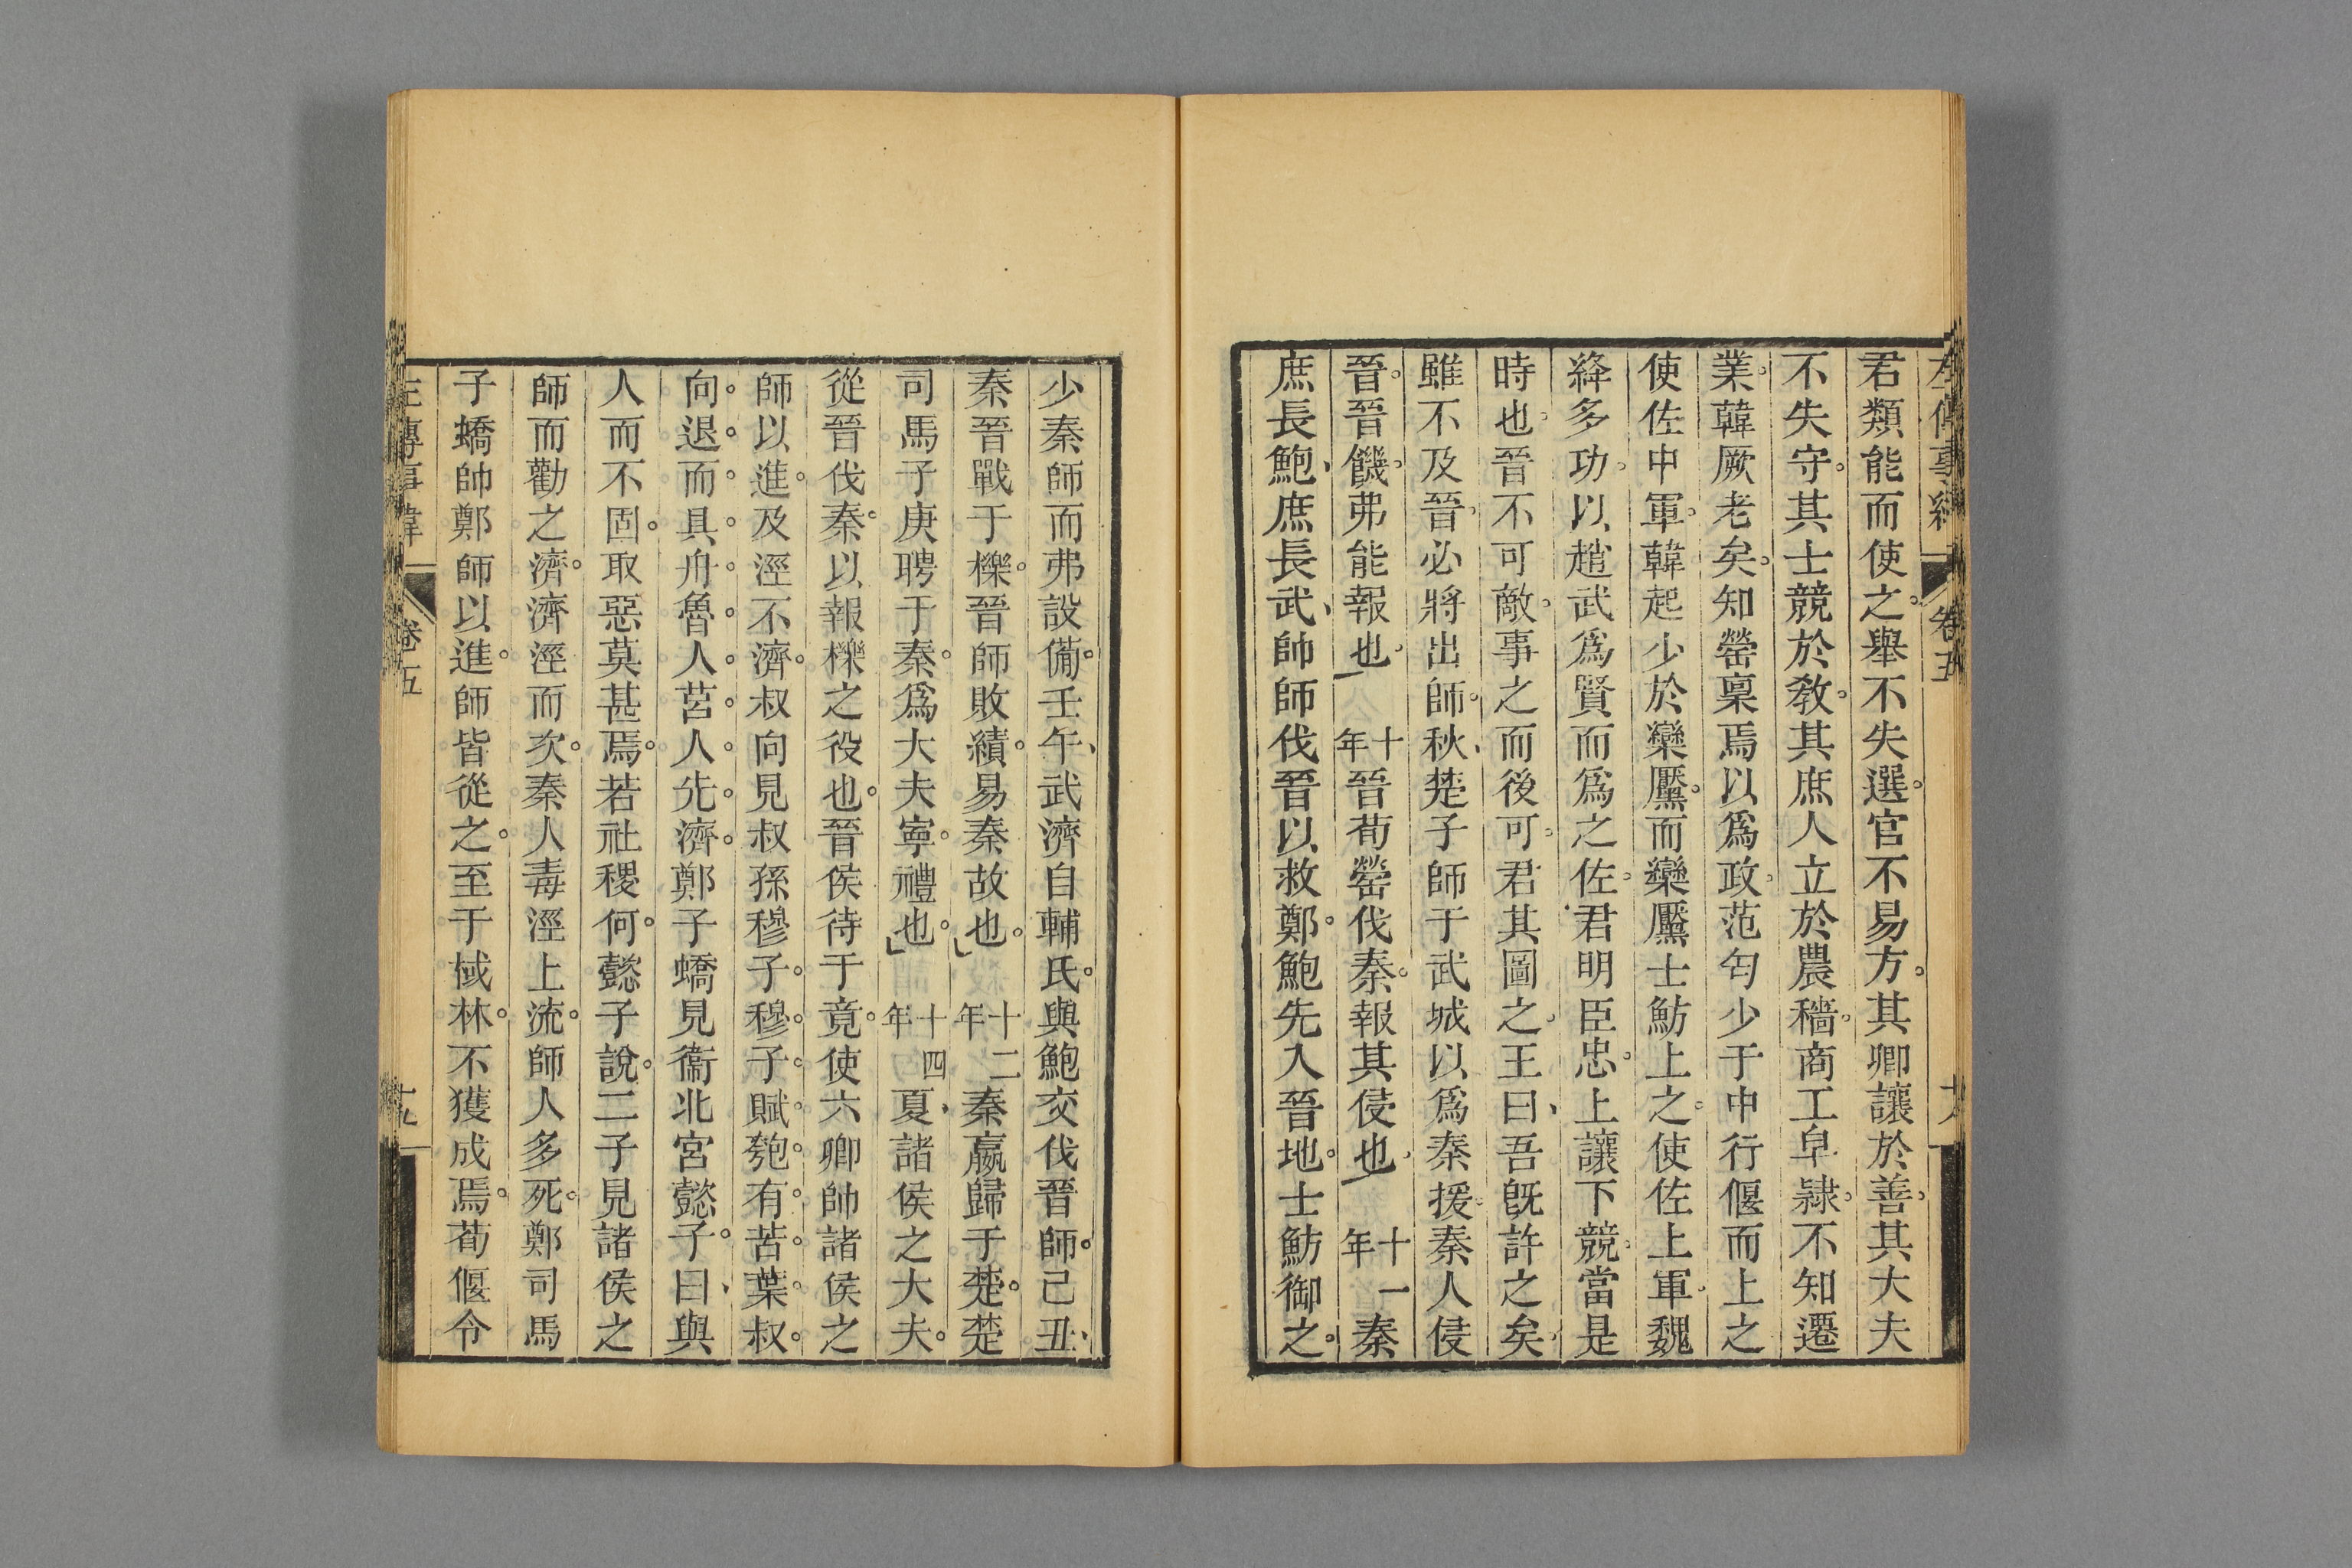 君類能而使之舉不失選官不易方其卿讓於善其大夫
不失守其士競於敎其庶人立於農穡商工皁隷不知遷
業韓厥老矣知罃稟焉以爲政范匄少于中行偃而上之
使佐中軍韓起少於欒黶而欒黶士魴上之使佐上軍魏
絳多功以趙武爲賢而爲之佐君明臣忠上讓下競當是
時也晉不可敵事之而後可君其圖之王曰吾旣許之矣
雖不及晉必將出師秋楚子師于武城以爲秦援秦人侵
晉晉饑弗能報也十年晉荀罃伐秦報其侵也十一年秦
庶長鮑庶長武帥師伐晉以救鄭鮑先入晉地士魴御之
少秦師而弗設備壬午武濟自輔氏與鮑交伐晉師己丑
秦晉戰于櫟晉師敗績易秦故也十二年秦嬴歸于楚楚
司馬子庚聘于秦爲大夫寧禮也十四年夏諸侯之大夫
從晉伐秦以報櫟之役也晉侯待于竟使六卿帥諸侯之
師以進及涇不濟叔向見叔孫穆子穆子賦匏有苦葉叔
向退而具舟魯人莒人先濟鄭子蟜見衞北宮懿子曰與
人而不固取惡莫甚焉若社稷何懿子說二子見諸侯之
師而勸之濟濟涇而次秦人毒涇上流師人多死鄭司馬
子蟜帥鄭師以進師皆從之至于棫林不獲成焉荀偃令
左傳事緯
卷五
十九